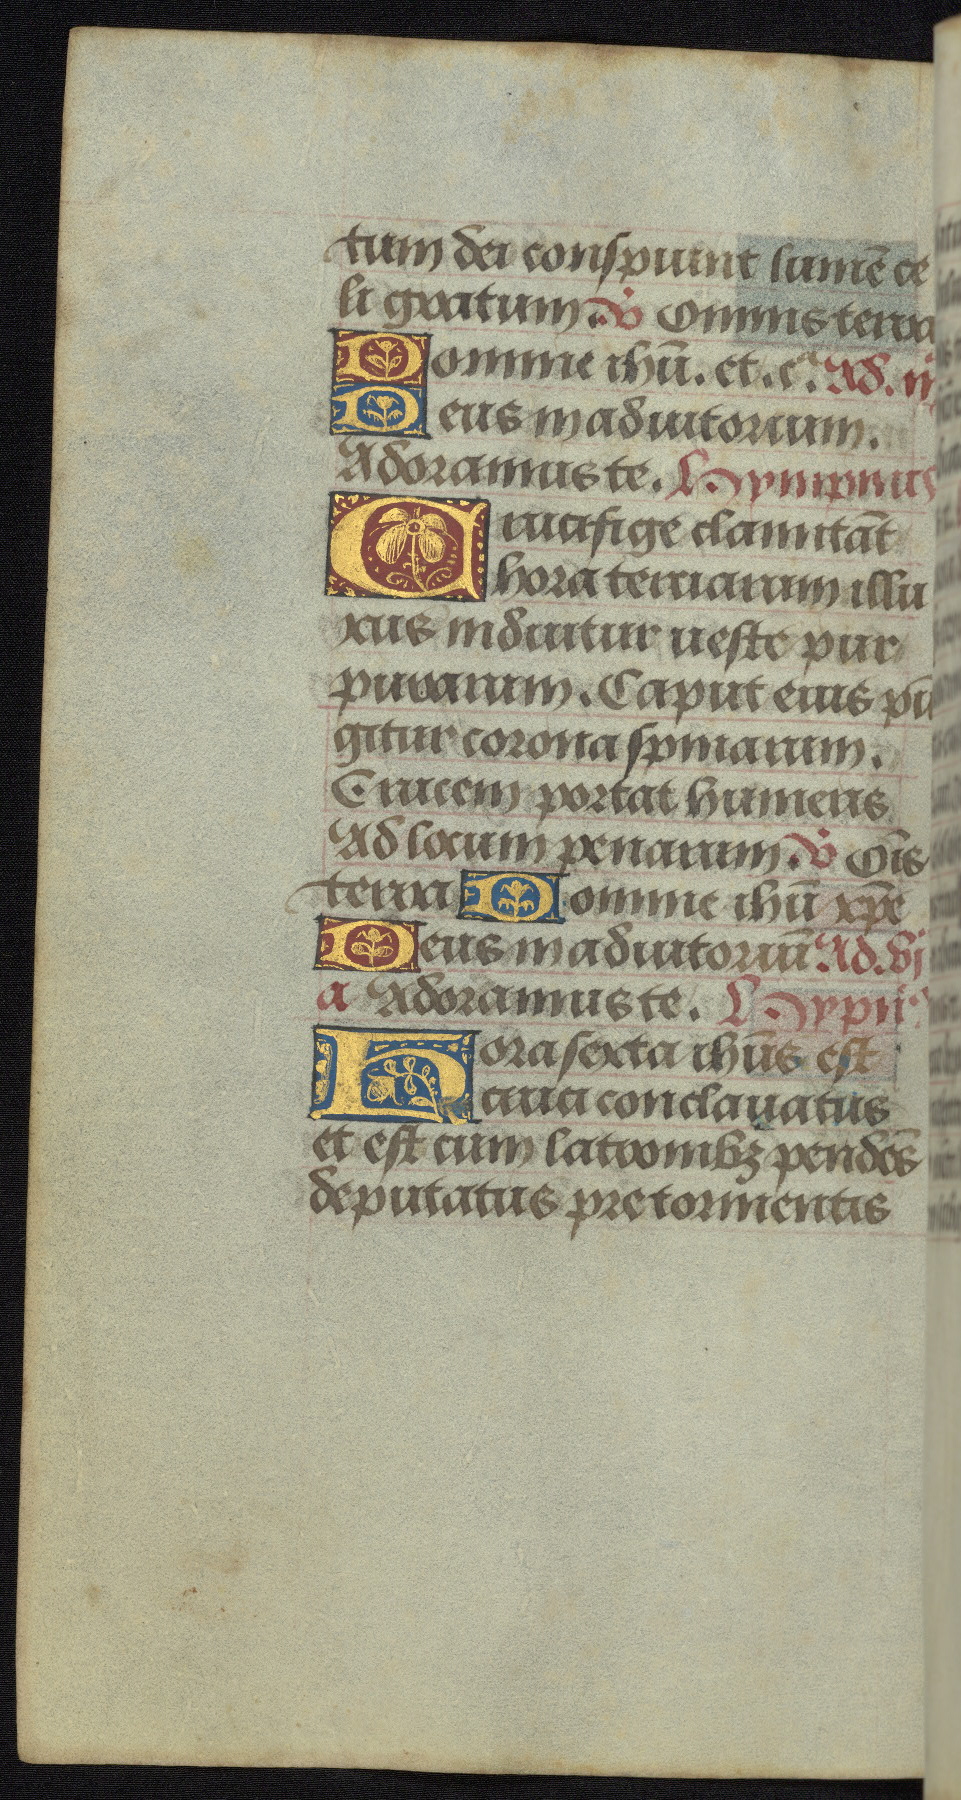 tum dei conspuunt lumē ce
li gratum. V Omnis terra
Domine ihū. et. c̄. Ad. iij
Deus in adiutorium.
Adoramus te. Hympnus
Crucifige clamitāt
hora terciarum illu
xus induitur ueste pur
purarum. Caput eius pū
gitur corona spinarum.
Crucem portat humeris
Ad locum penarum. V Oīs
terra Domine ihū xpe
Deus in adiutoriū Ad. vj
a Adoramus te. Hypn
Hora sexta ihūs est
cruci conclauatus
et est cum latronibꝫ pendēs
deputatus pre tormentis